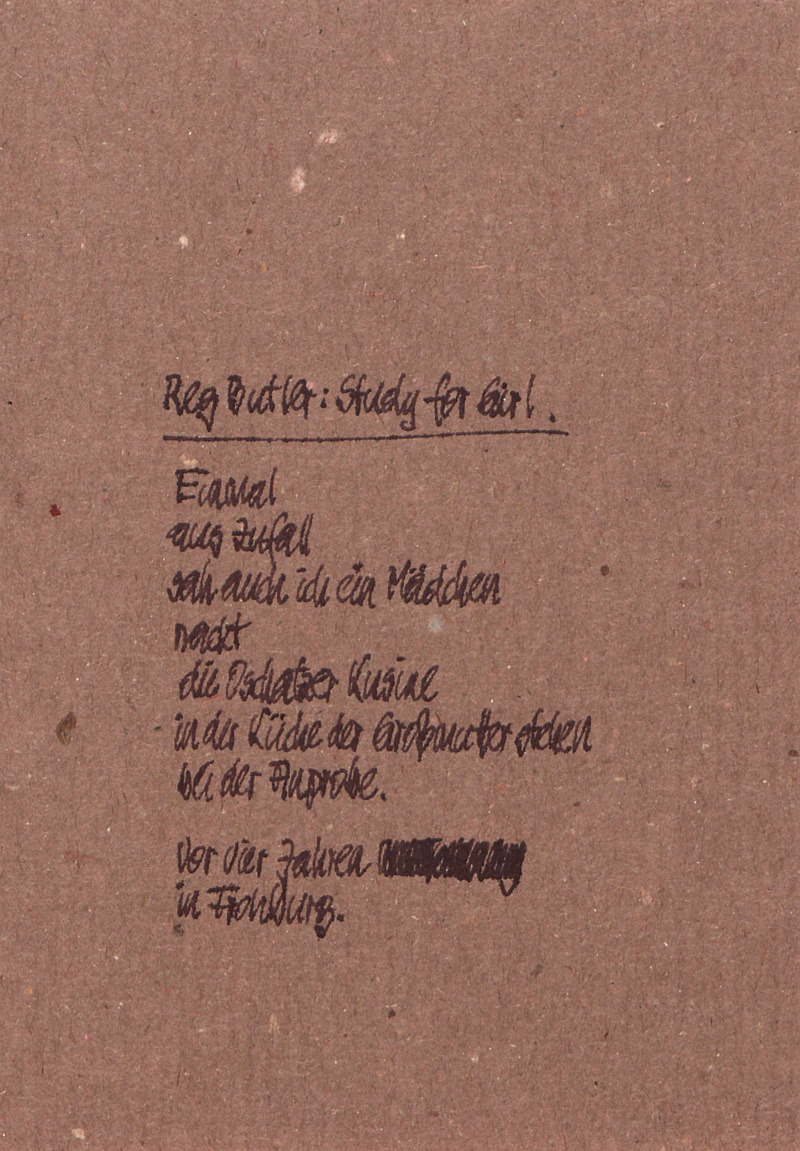 Reg Butler: Study for Girl.
Einmal
aus Zufall
sah auch ich ein Mädchen
nackt
die Oschatzer Kusine
in der Küche der Großmutter stehen
bei der Anprobe.
Vor vier Jahren
in Frohburg.